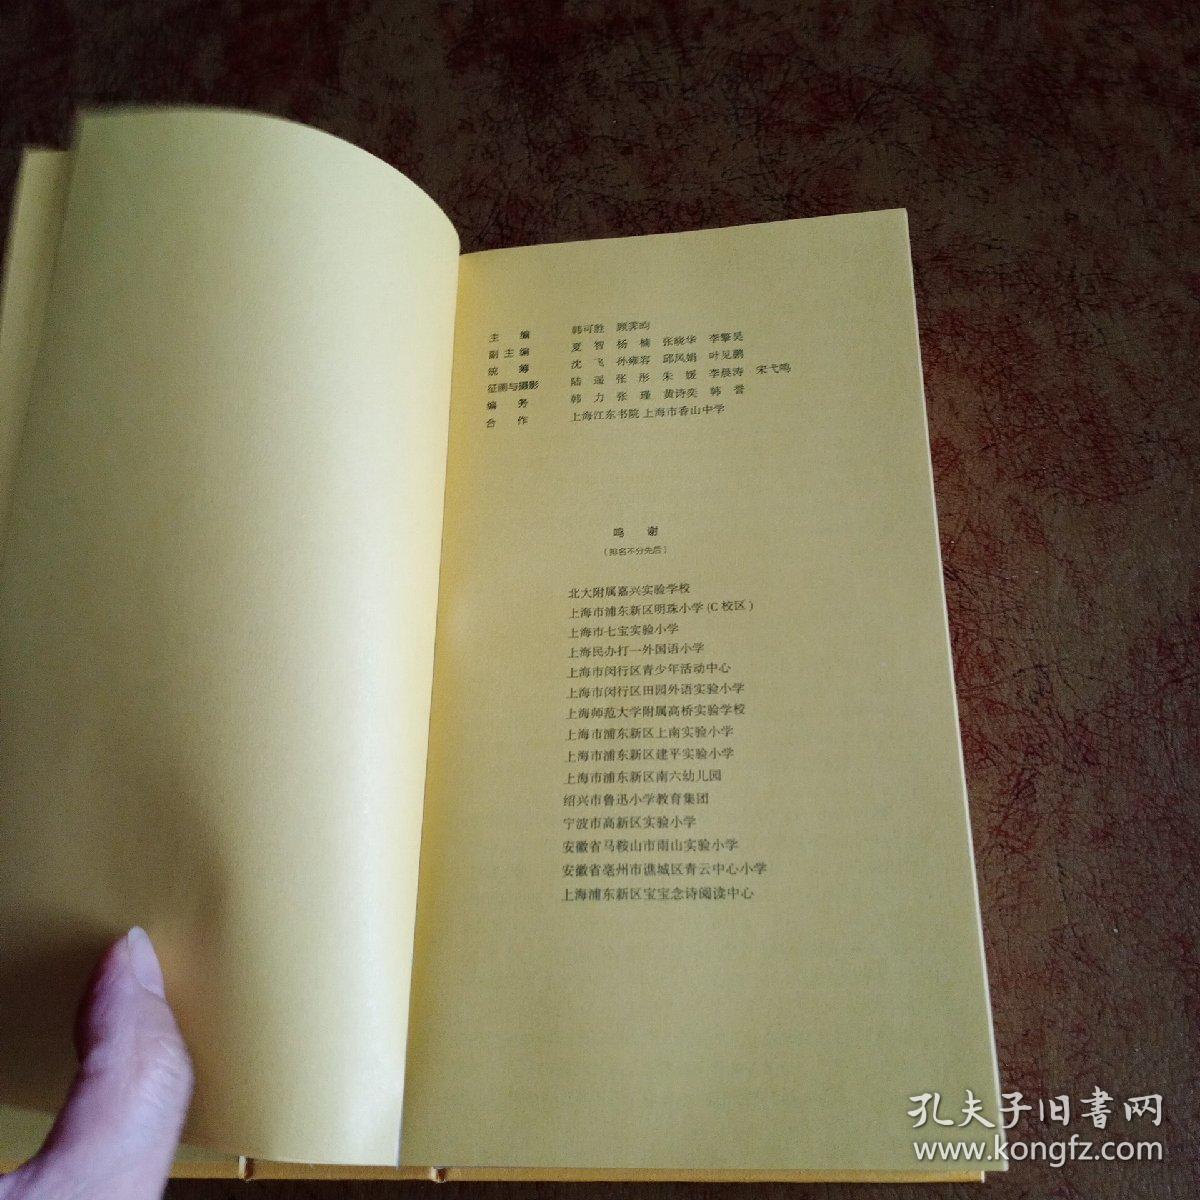 主 编 韩可胜 顾霁昀
副主编 夏 智 杨 楠 张晓华 李擎昊
统 筹 沈 飞 孙雍容 邱凤娟 叶见鹏
征画与摄影 陆 遥 张 彤 朱 媛 李晨涛 宋弋鸣
编 务 韩 力 张 瑾 黄诗奕 韩 誉
合 作 上海江东书院 上海市香山中学
鸣 谢
(排名不分先后)
北大附属嘉兴实验学校
上海市浦东新区明珠小学(C校区)
上海市七宝实验小学
上海民办打一外国语小学
上海市闵行区青少年活动中心
上海市闵行区田园外语实验小学
上海师范大学附属高桥实验学校
上海市浦东新区上南实验小学
上海市浦东新区建平实验小学
上海市浦东新区南六幼儿园
绍兴市鲁迅小学教育集团
宁波市高新区实验小学
安徽省马鞍山市雨山实验小学
安徽省亳州市谯城区青云中心小学
上海浦东新区宝宝念诗阅读中心
孔夫子旧书网
www.kongfz.com